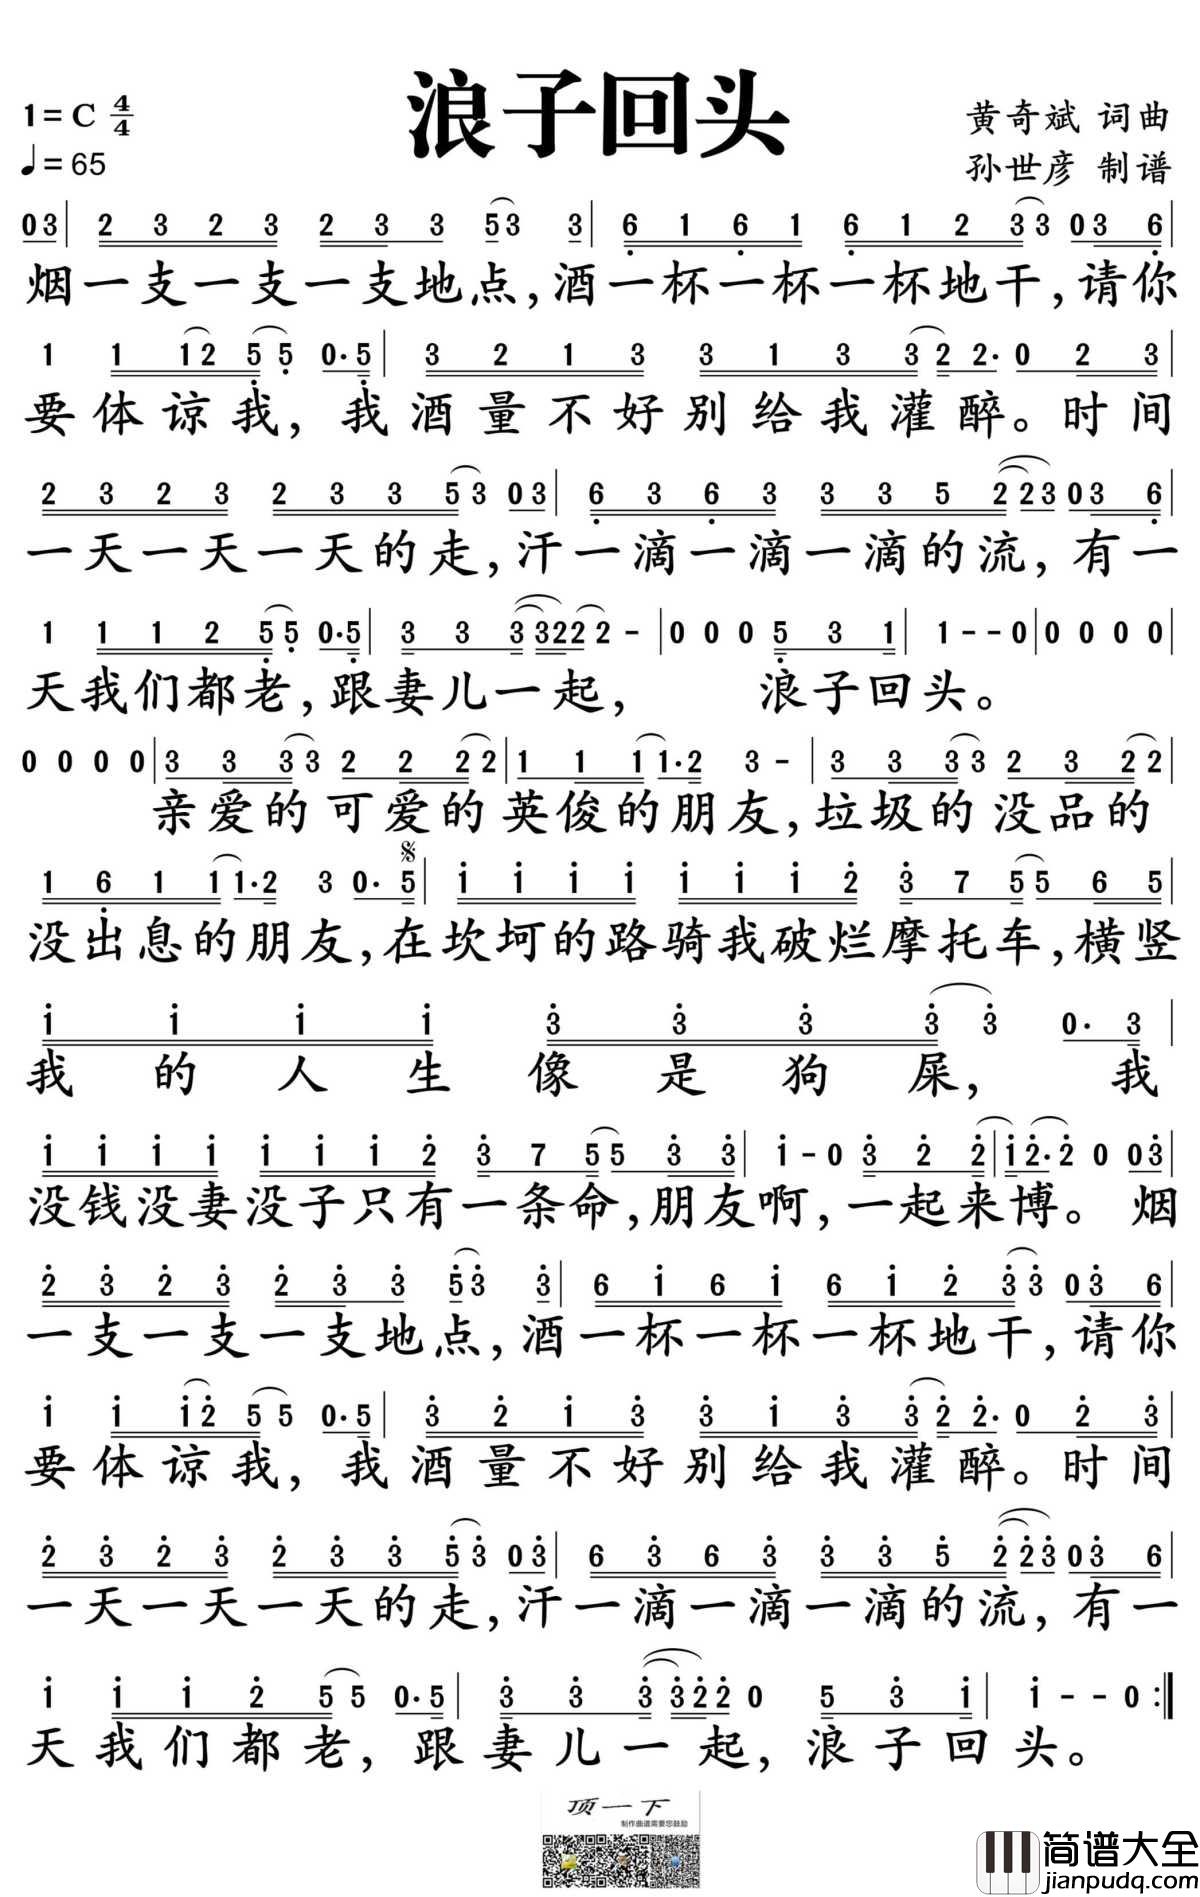 浪子回头
1=C 4/4
♩=65
黄奇斌 词曲
孙世彦 制谱
03| 2 3 2 3 2 3 3 53 3| 6 1 6 1 6 1 2 33 03 6|
烟一支一支一支地点,酒一杯一杯一杯地干,请你
1 1 12 5 5 0·5| 3 2 1 3 3 1 3 32 2· 0 2 3|
要体谅我,我酒量不好别给我灌醉。时间
2 3 2 3 2 3 3 53 03| 6 3 6 3 3 3 5 223 03 6|
一天一天一天的走,汗一滴一滴一滴的流,有一
1 1 1 2 55 0·5| 3 3 3 322 2 -|0 0 0 5 3 1| 1--0|0 0 0 0|
天我们都老,跟妻儿一起, 浪子回头。
0 0 0 0|3 3 33 2 2 22|1 1 11·2 3 -| 3 3 33 2 3 22|
亲爱的可爱的英俊的朋友,垃圾的没品的
1 6 1 11·2 3 0· 5| i i i i i i i 2 3 7 55 6 5
没出息的朋友,在坎坷的路骑我破烂摩托车,横竖
i i i i 3 3 3 3 3 0· 3|
我的人生像是狗屎,我
i i i i i i i 2 3 7 55 3 3| i - 0 3 2 2|i2·2 0 03|
没钱没妻没子只有一条命,朋友啊,一起来博。烟
2 3 2 3 2 3 3 53 3| 6 i 6 i 6 i 2 33 03 6|
一支一支一支地点,酒一杯一杯一杯地干,请你
i i i2 5 5 0·5| 3 2 i 3 3 i 3 32 2· 0 2 3|
要体谅我,我酒量不好别给我灌醉。时间
2 3 2 3 2 3 3 53 03| 6 3 6 3 3 3 5 223 03 6|
一天一天一天的走,汗一滴一滴一滴的流,有一
i i i 2 5 5 0·5| 3 3 3 322 0 5 3 i| i - - 0 :|
天我们都老,跟妻儿一起,浪子回头。
顶一下
制作曲谱需要您鼓励
简谱大全
jianpudq.com